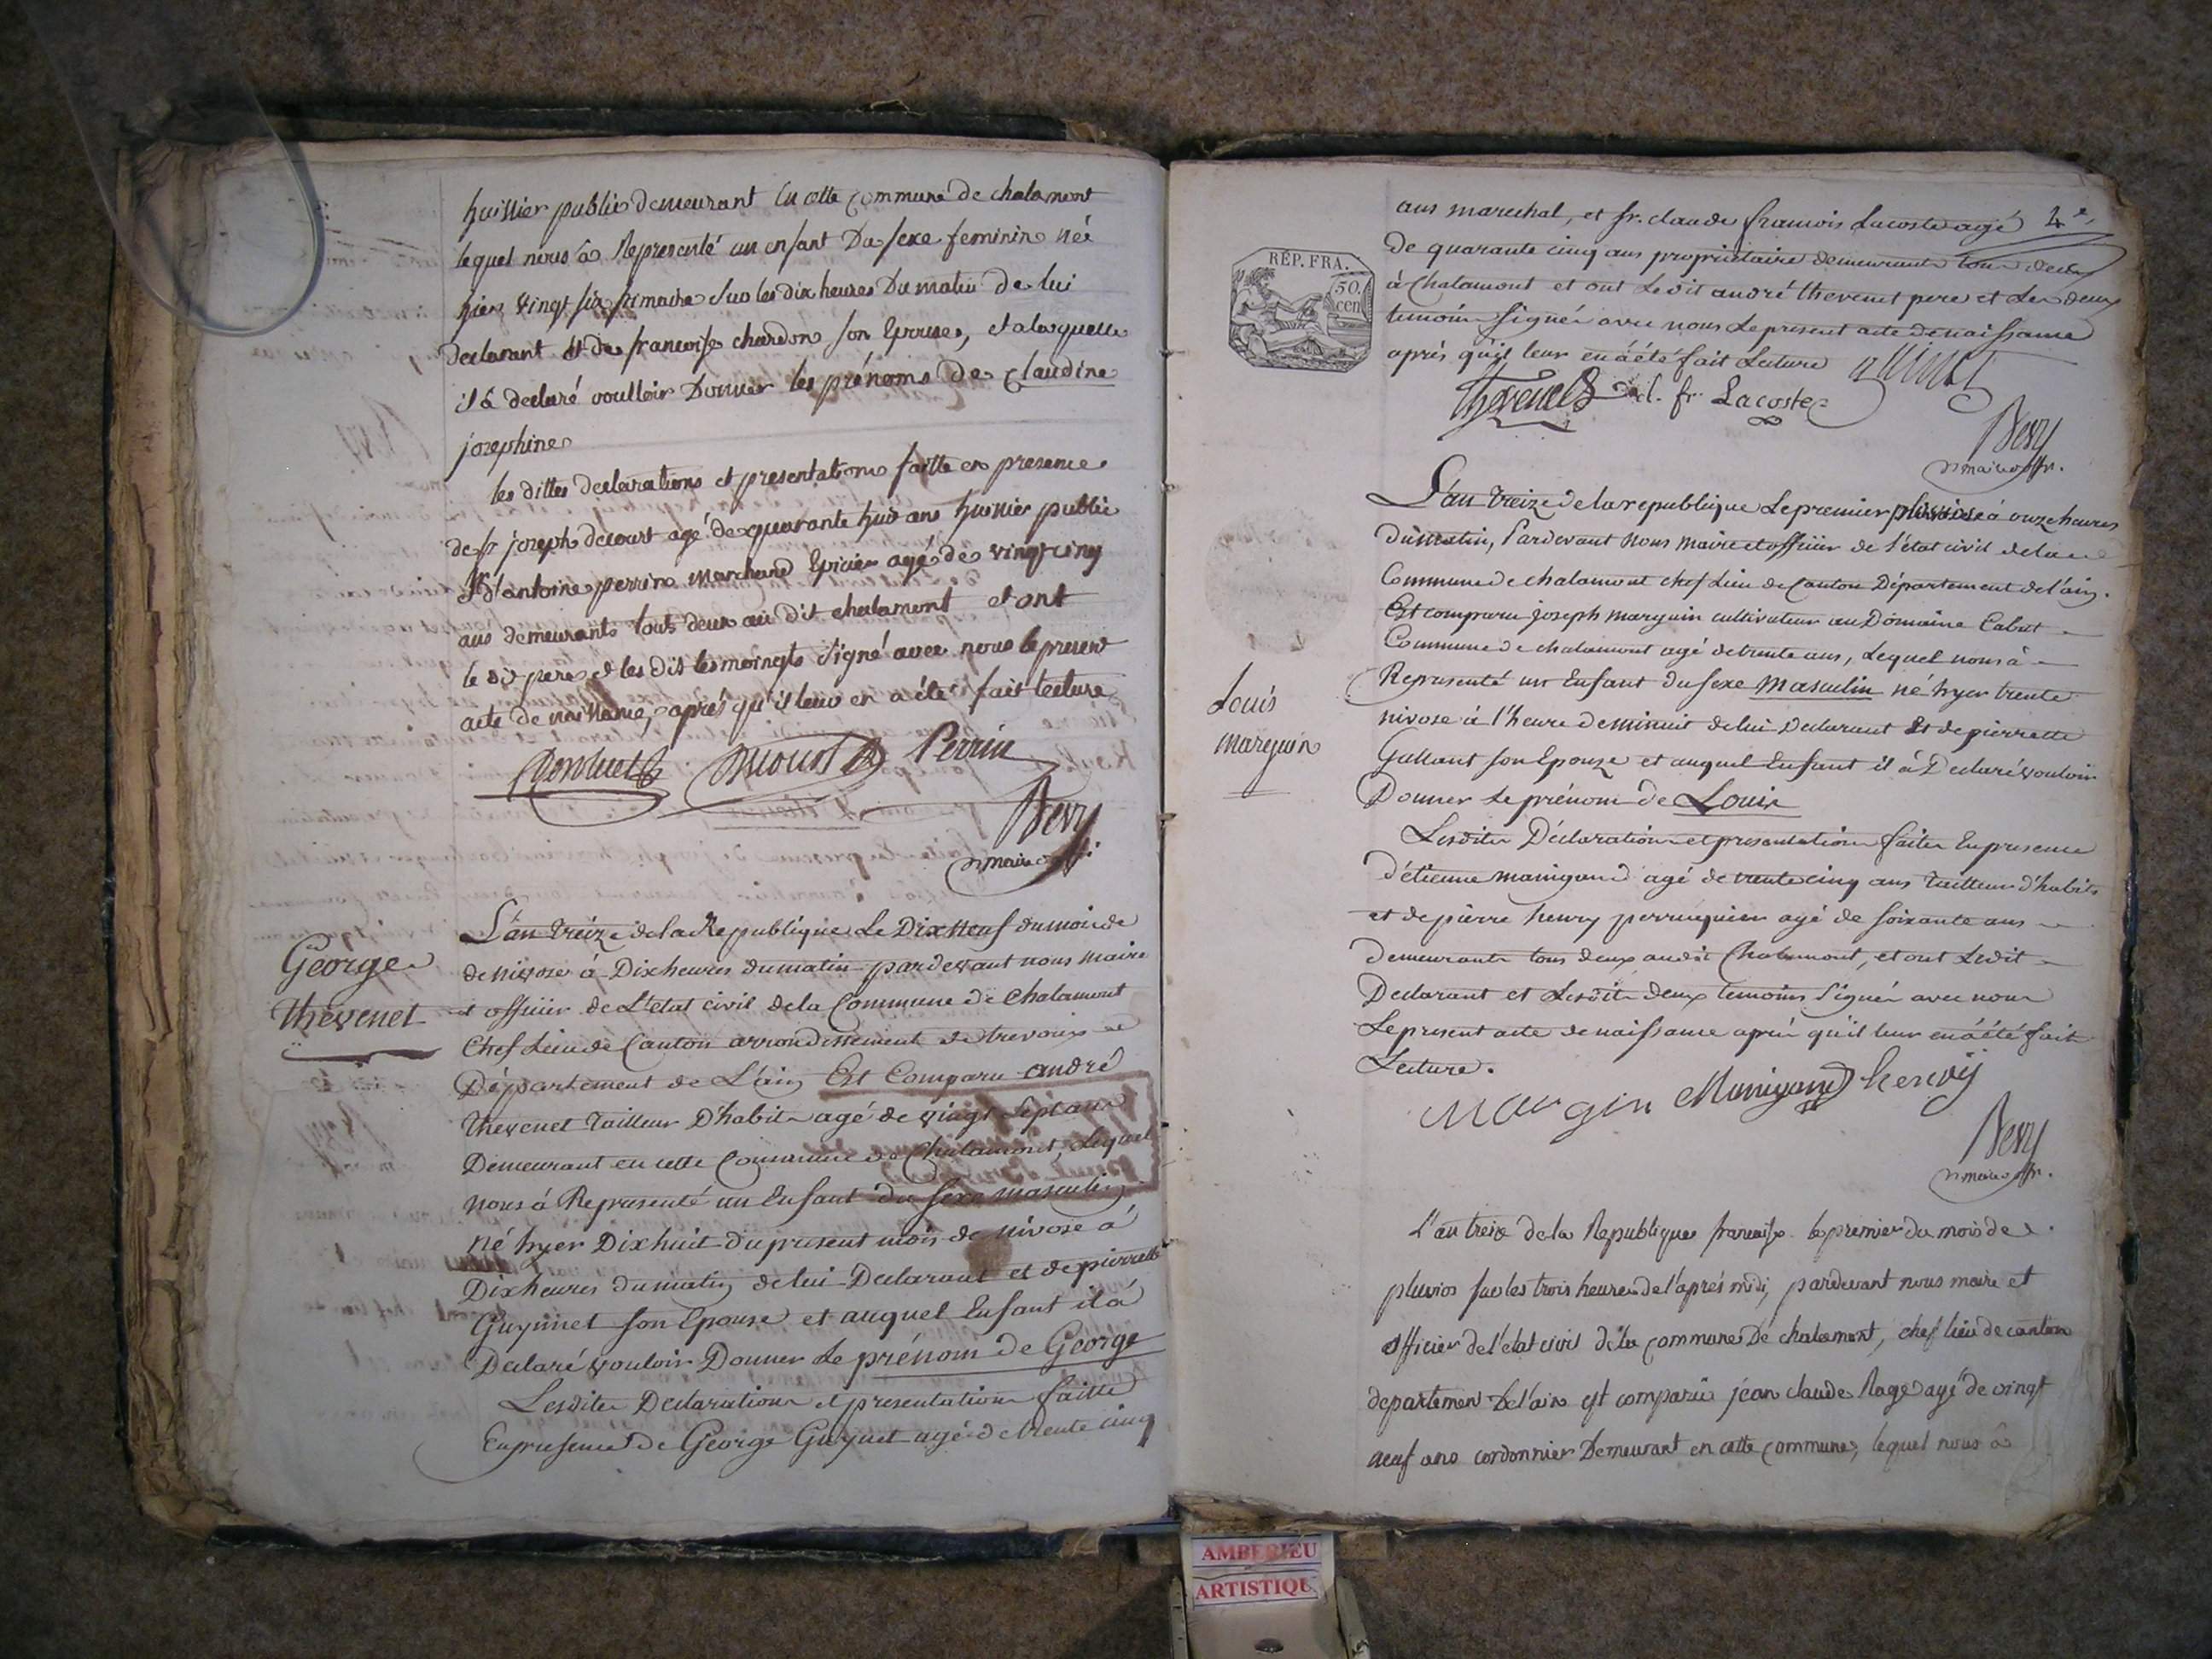 huissier public demeurant en cette commune de chalamont
lequel nous à Representé un enfant Du sexe feminin né
hier vingt six frimaire sur les dix heures Du matin de lui
declarant et de francoise chardon son Epouse, et a laquelle
il à declaré voulloir Donner les prénoms de claudine
josephine
les dittes declarations et presentations faitte en presence
de sr joseph decourt agé de quarante huit ans huissier public
et st antoine perrin marchand Epicier agé de vingt cinq
ans demeurants touts deux au dit chalamont et ont
le dit pere et les dits temoingts signé avec nous le present
acte de naissance, après qu'il leur en a été fait lecture
Perrin
Bevy
maire
George
thevenet
L'an treize de la Republique Le Dix Neuf du mois de
de nivose à Dix heures du matin pardevant nous maire
et officier de L'état civil de la Commune de Chalamont
Chef Lieu de Canton arrondissement de trevoux
Département de L'ain Est Comparu andré
thevenet tailleur D'habits agé de vingt sept ans
Demeurant en cette Commune de Chalamont, Lequel
nous à Representé un Enfant du sexe masculin
né hyer Dix huit du present mois de nivose à
Dix heures du matin de lui Declarant et de pierrette
Guyniet son Epouse et auquel Enfant il à
Declaré vouloir Donner Le prénom de George
Lesdites Declarations et presentations faitte
En presence de George Guynet agé de trente cinq
4e
ans marechal, et sr. claude francois Lacoste agé
de quarante cinq ans propriétaire demeurants tous deux
à Chalamont et ont Ledit andré thevenet pere et Les deux
temoins signé avec nous Le present acte de naissance
après qu'il leur en à été fait Lecture
RÉP. FRA.
50.
cen
Thevenet cl. fr. Lacoste
Bevy
maire offr.
Louis
Marguin
L'an treize de la republique Le premier pluviose à onze heures
du matin, Pardevant Nous maire et officier de l'état civil de la
Commune de chalamont chef Lieu de Canton Département de l'ain.
Est comparu joseph marguin cultivateur au Domaine Cabut
Commune de chalamont agé de trente ans, Lequel nous à
Representé un Enfant du sexe Masculin né hyer trente
nivose à l'heure de minuit de lui Declarant Et de pierrette
Gallant son Epouze et auquel Enfant il à Declaré vouloir
Donner Le prénom de Louis
Lesdites Déclarations et presentations faites En presence
d'étienne manigand agé de trente cinq ans tailleur d'habits
et de pierre henry perruquier agé de soixante ans
Demeurants tous deux audit Chalamont, et ont Ledit
Declarant et Lesdits deux temoins Signé avec nous
Le present acte de naissance après qu'il leur en à été fait
Lecture.
Margin Manigand henry
Bevy
maire offr.
L'an treize de la Republique francaise le premier du mois de
pluvios sur les trois heures de l'après midi, pardevant nous maire et
officier de l'etat civil de la commune De chalamont, chef lieu de canton
departement De l'ain est comparu jean claude Nage agé de vingt
neuf ans cordonnier Demeurant en cette commune, lequel nous à
AMBERIEU
ARTISTIQU